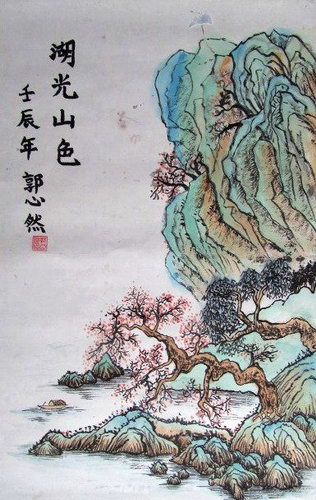 湖光山色
壬辰年 郭心然